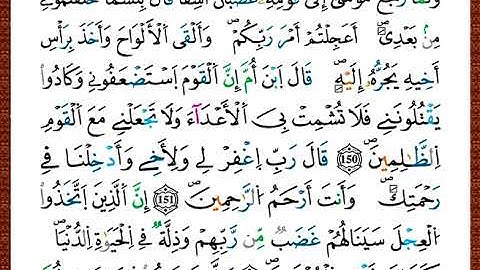 رَجَعَ مُوسَىٰ إِلَىٰ قَوْمِهِۦ غَضْبَٰنَ أَسِفًا قَالَ بِئْسَمَا خَلَفْتُمُونِي
مِنۢ بَعْدِيٓ أَعَجِلْتُمْ أَمْرَ رَبِّكُمْ وَأَلْقَى ٱلْأَلْوَاحَ وَأَخَذَ بِرَأْسِ
أَخِيهِ يَجُرُّهُۥٓ إِلَيْهِ قَالَ ٱبْنَ أُمَّ إِنَّ ٱلْقَوْمَ ٱسْتَضْعَفُونِي وَكَادُوا۟
يَقْتُلُونَنِي فَلَا تُشْمِتْ بِيَ ٱلْأَعْدَآءَ وَلَا تَجْعَلْنِي مَعَ ٱلْقَوْمِ
ٱلظَّٰلِمِينَ 150 قَالَ رَبِّ ٱغْفِرْ لِي وَلِأَخِي وَأَدْخِلْنَا فِي
رَحْمَتِكَ وَأَنتَ أَرْحَمُ ٱلرَّٰحِمِينَ 151 إِنَّ ٱلَّذِينَ ٱتَّخَذُوا۟
ٱلْعِجْلَ سَيَنَالُهُمْ غَضَبٌ مِّن رَّبِّهِمْ وَذِلَّةٌ فِي ٱلْحَيَوٰةِ ٱلدُّنْيَا